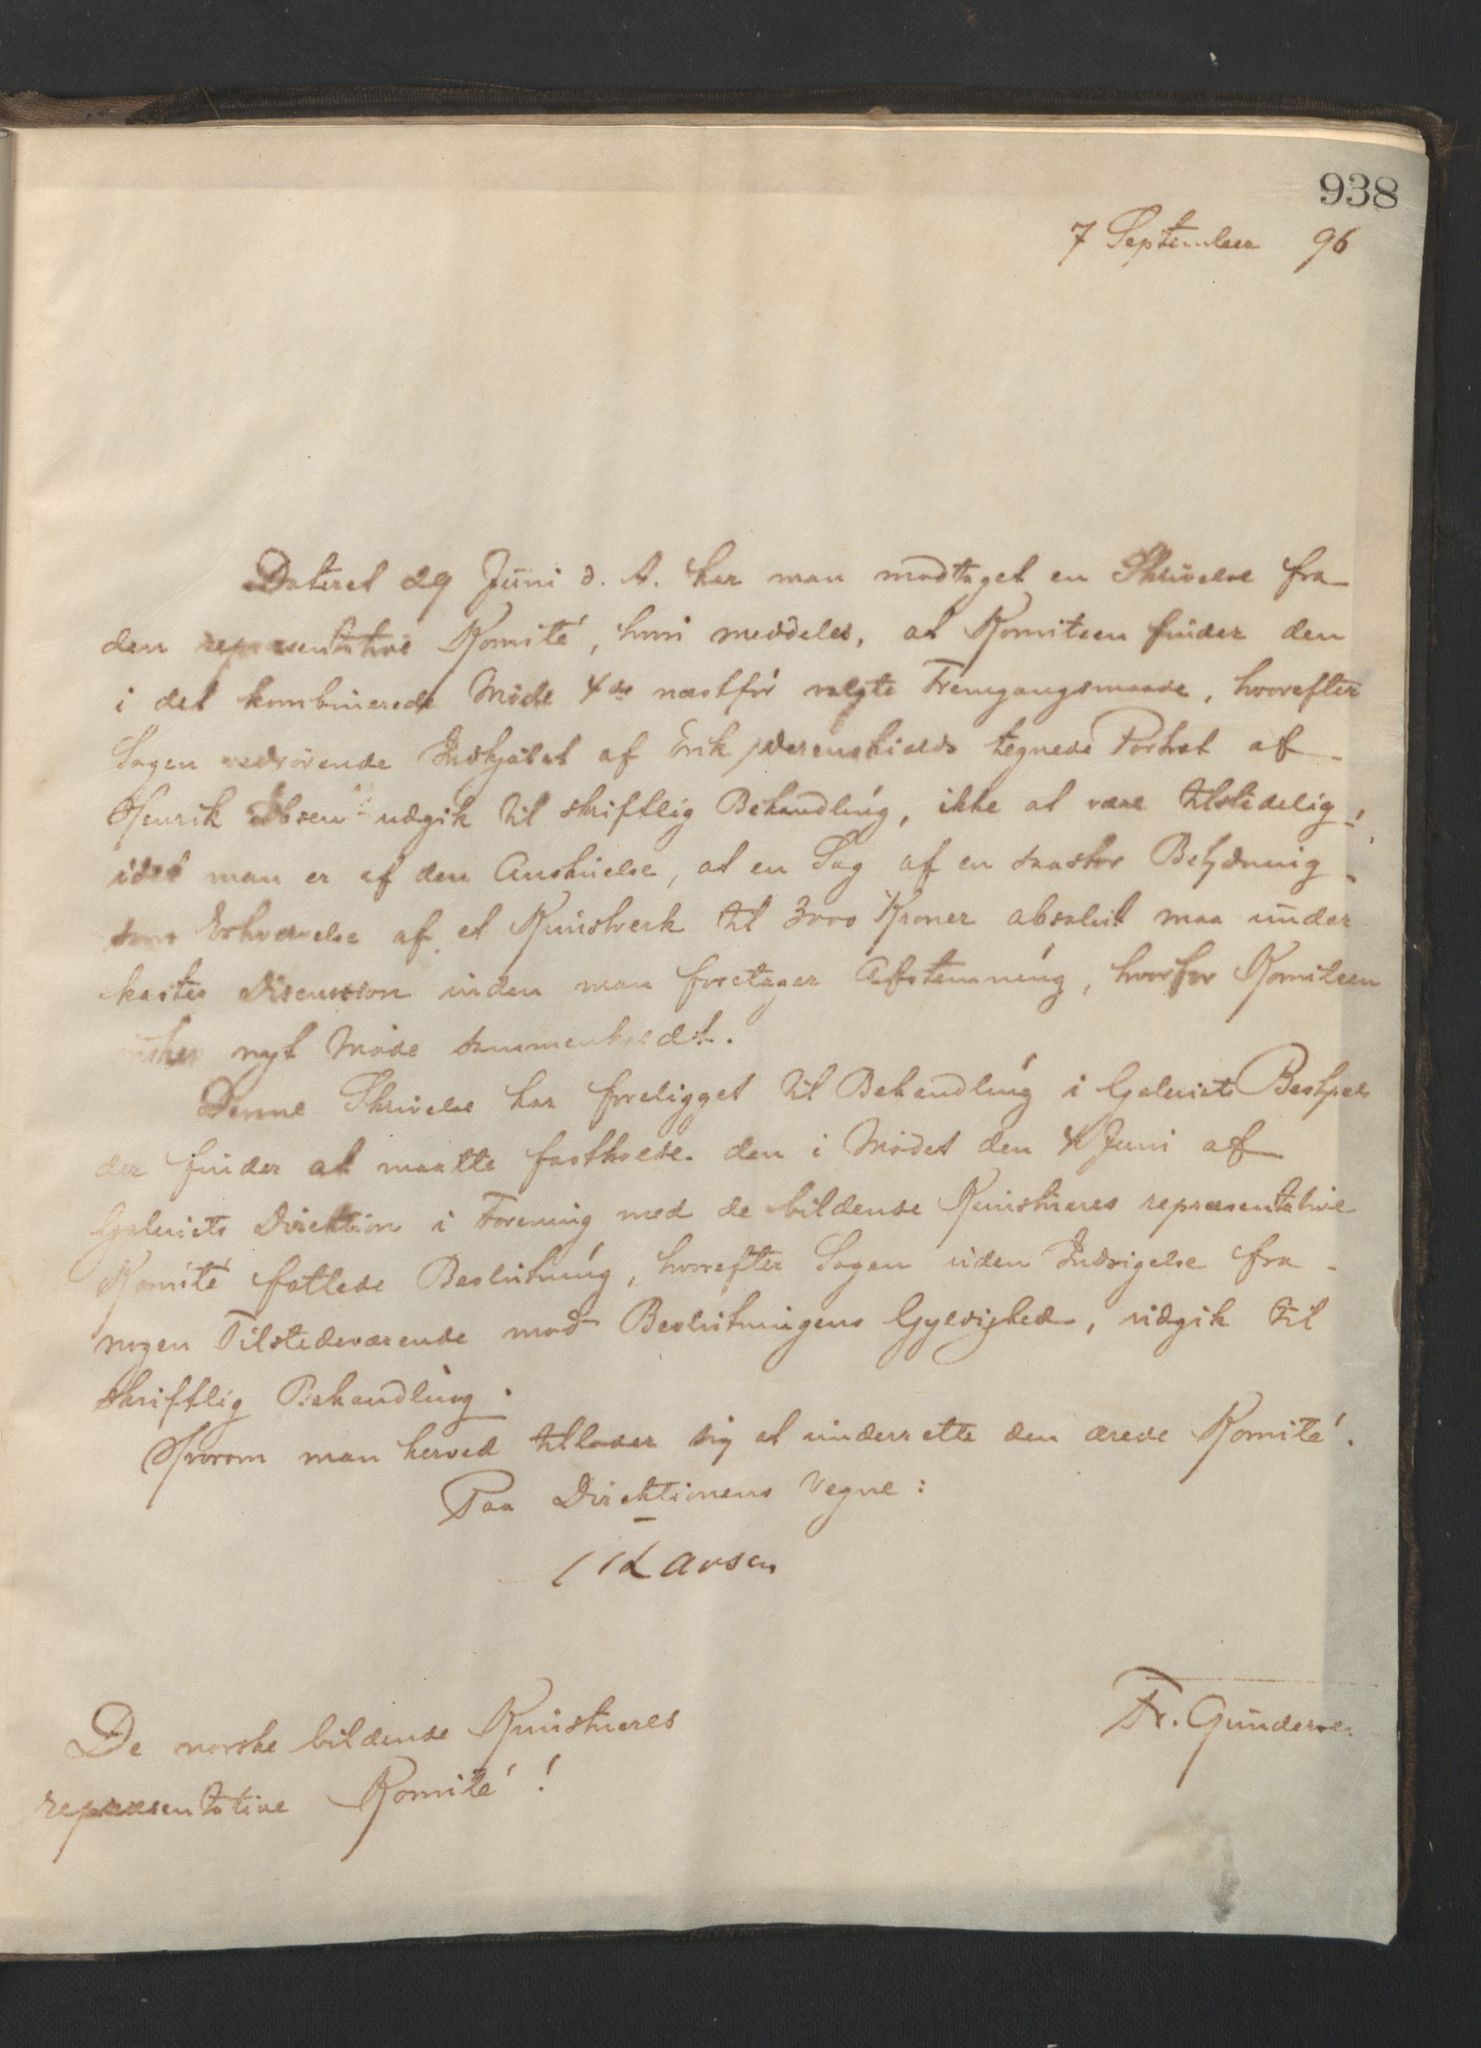 938
7 September 96
Dateret 29 Juni d. A. har man modtaget en Skrivelse fra
den repræsentative Komité, hvori meddeles, at Komiteen finder den
i det kombinerede Møde 4de næstfør valgte Fremgangsmaade, hvorefter
Sagen vedrørende Indkjøbet af Erik Werenskiolds tegnede Portræt af
Henrik Ibsen udgik til skriftlig Behandling, ikke at være tilstedelig,
idet man er af den Anskuelse, at en Sag af en saastor Betydning
som Erhvervelse af et Kunstverk til 3000 Kroner absolut maa under
kastes Discussion inden man foretager Afstemning, hvorfor Komiteen
ønsker nyt Møde sammenkaldt.
Denne Skrivelse har foreligget til Behandling i Galeriets
der finder at maatte fastholde den i Mødet den 4 Juni af
Galeriets Direktion i Forening med de bildende Kunstneres repræsentative
Komité fattede Beslutning, hvorefter Sagen uden Indsigelse fra
nogen Tilstedeværende mod Beslutningens Gyldighed, udgik til
skriftlig Behandling.
Hvorom man herved tillader sig at underrette den ærede Komité.
Paa Direktionens Vegne:
Larsen
Fr. Gundersen
De norske bildende Kunstneres
repræsentative Komité!